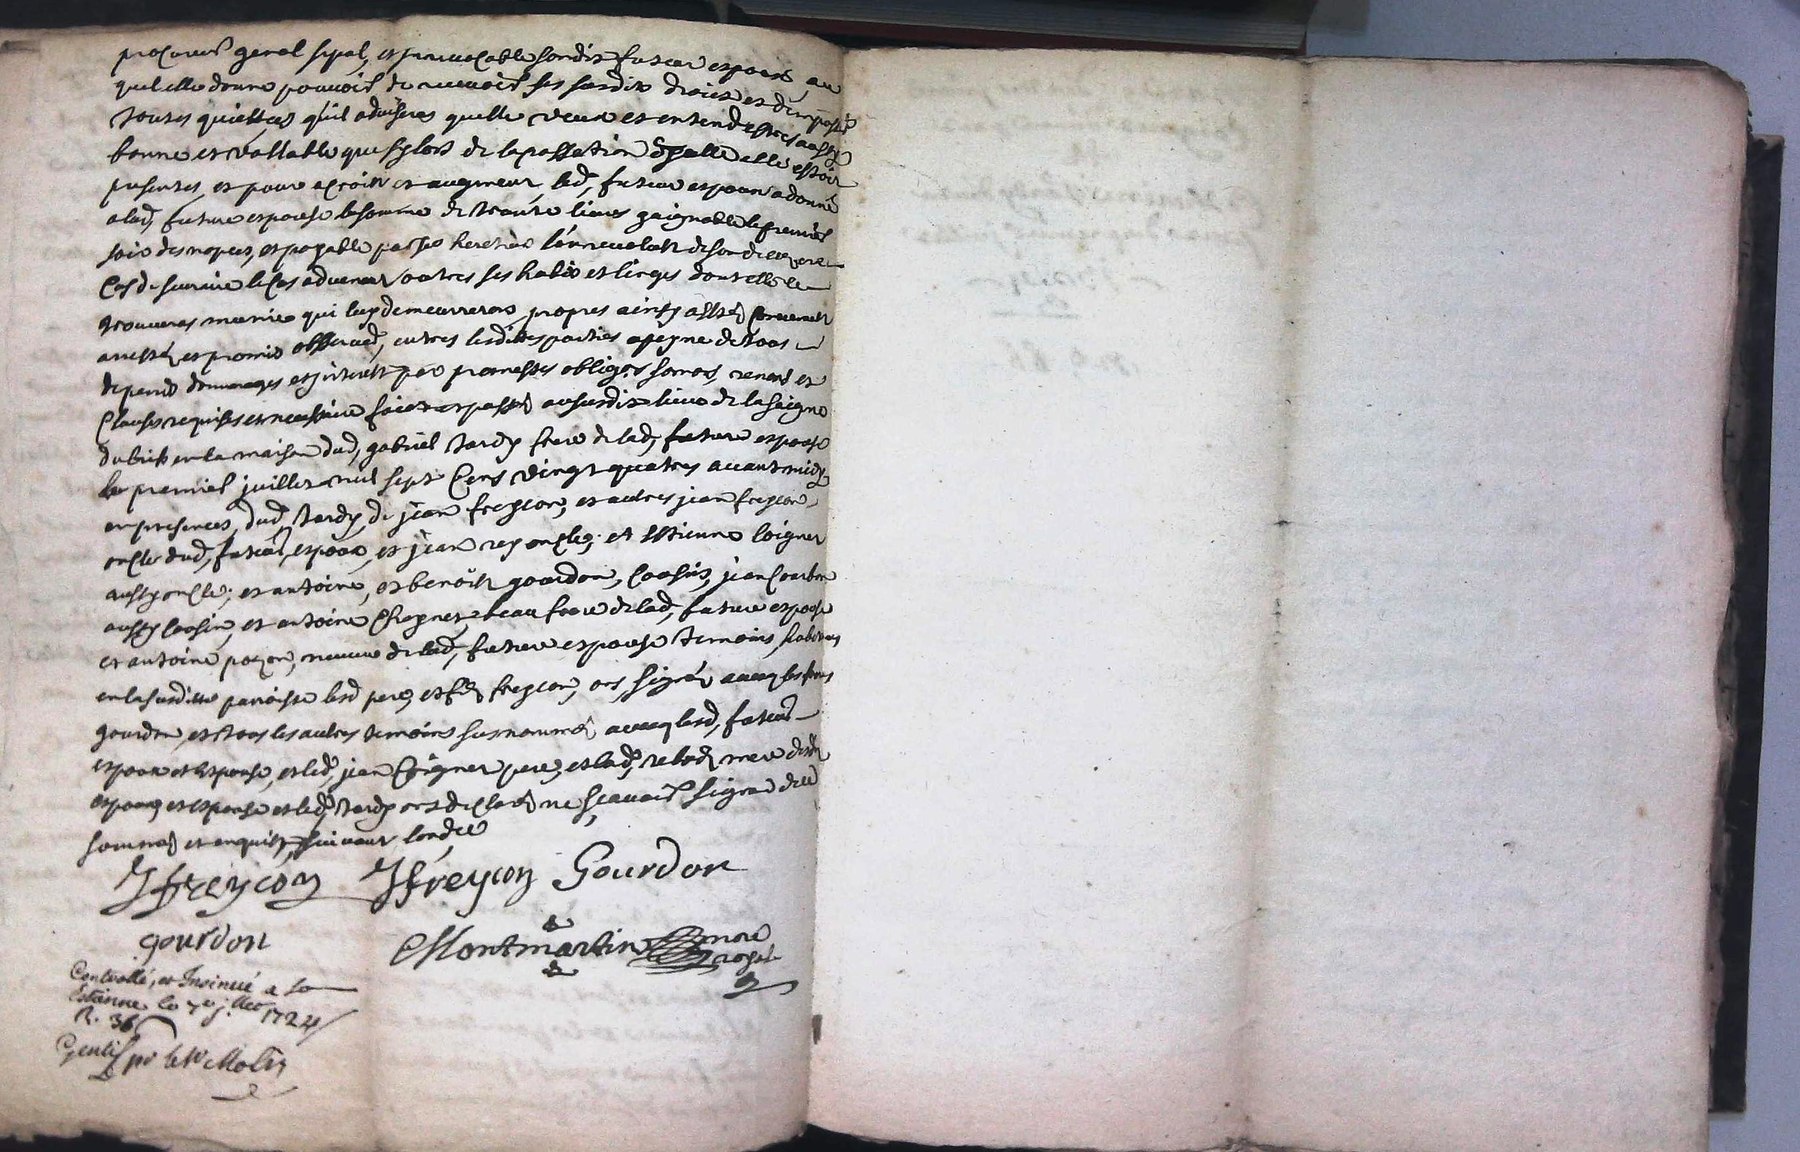 procureur genal spal, et irrevocable sondit futur espoux, au
quel elle donne pouvoir de recevoir ses susdits droicts et de passer
toutes quittces qu'il advisera quelle veux et entend estre aussy
bonne et vallable que sy lors de la passation dycelle elle estoit
presente, et pour acroist et augment led, futur espoux a donné
a lad, future espouse la somme de trante livres gaignable le premier
soir des nopces, et payable par ses heretiers lannee de son deces en
cas de survie le cas advenant outres ses habis et linges dont elle se
trouveras munie qui luy demeurreront propres ainsy a esté convenut
arresté, et promis observer, entres lesdittes parties a peyne de tous
depens dommages et interest par promesses obligons soms, renons et
clauses requises et necessaire faict et passé au susdit lieu de la seigne
du bick en la maison dud, gabriel tardy frere de lad, future espouse
le premier juillet mil sept cens vingt quatres avant midy
en presences, dud, tardy, de jean freycon, et autres jean freycon
oncle dud, futur, espoux, et jean rey oncle, et estienne loignet
aussy oncle, et antoine, et benoist gourdon, cousins, jean courbon
aussy cousin, et antoine chognet beau frere de lad, future espouse
et antoine pozon, neuveu de lad, future espouse temoins, habitans
en la susditte paroisse lesd pere, et fils freycon, ons, signé, avecq les freres
gourdon, et tous les autres temoins susnommés avecq lesd, futurs
espoux et espouse, et led, jean loignet pere, et lad, rebod, mere desd
espoux et espouse et led, tardy ont declaré ne sçavoir signer de ce
sommés et enquist, suivant l'ordce
J freycon J freycon Gourdon
gourdon
Montmartin nore
royal
Controllé, et Insinué a St
Estienne le 7e j.llet 1724
R. 36
Gentil pr le Sr Molin